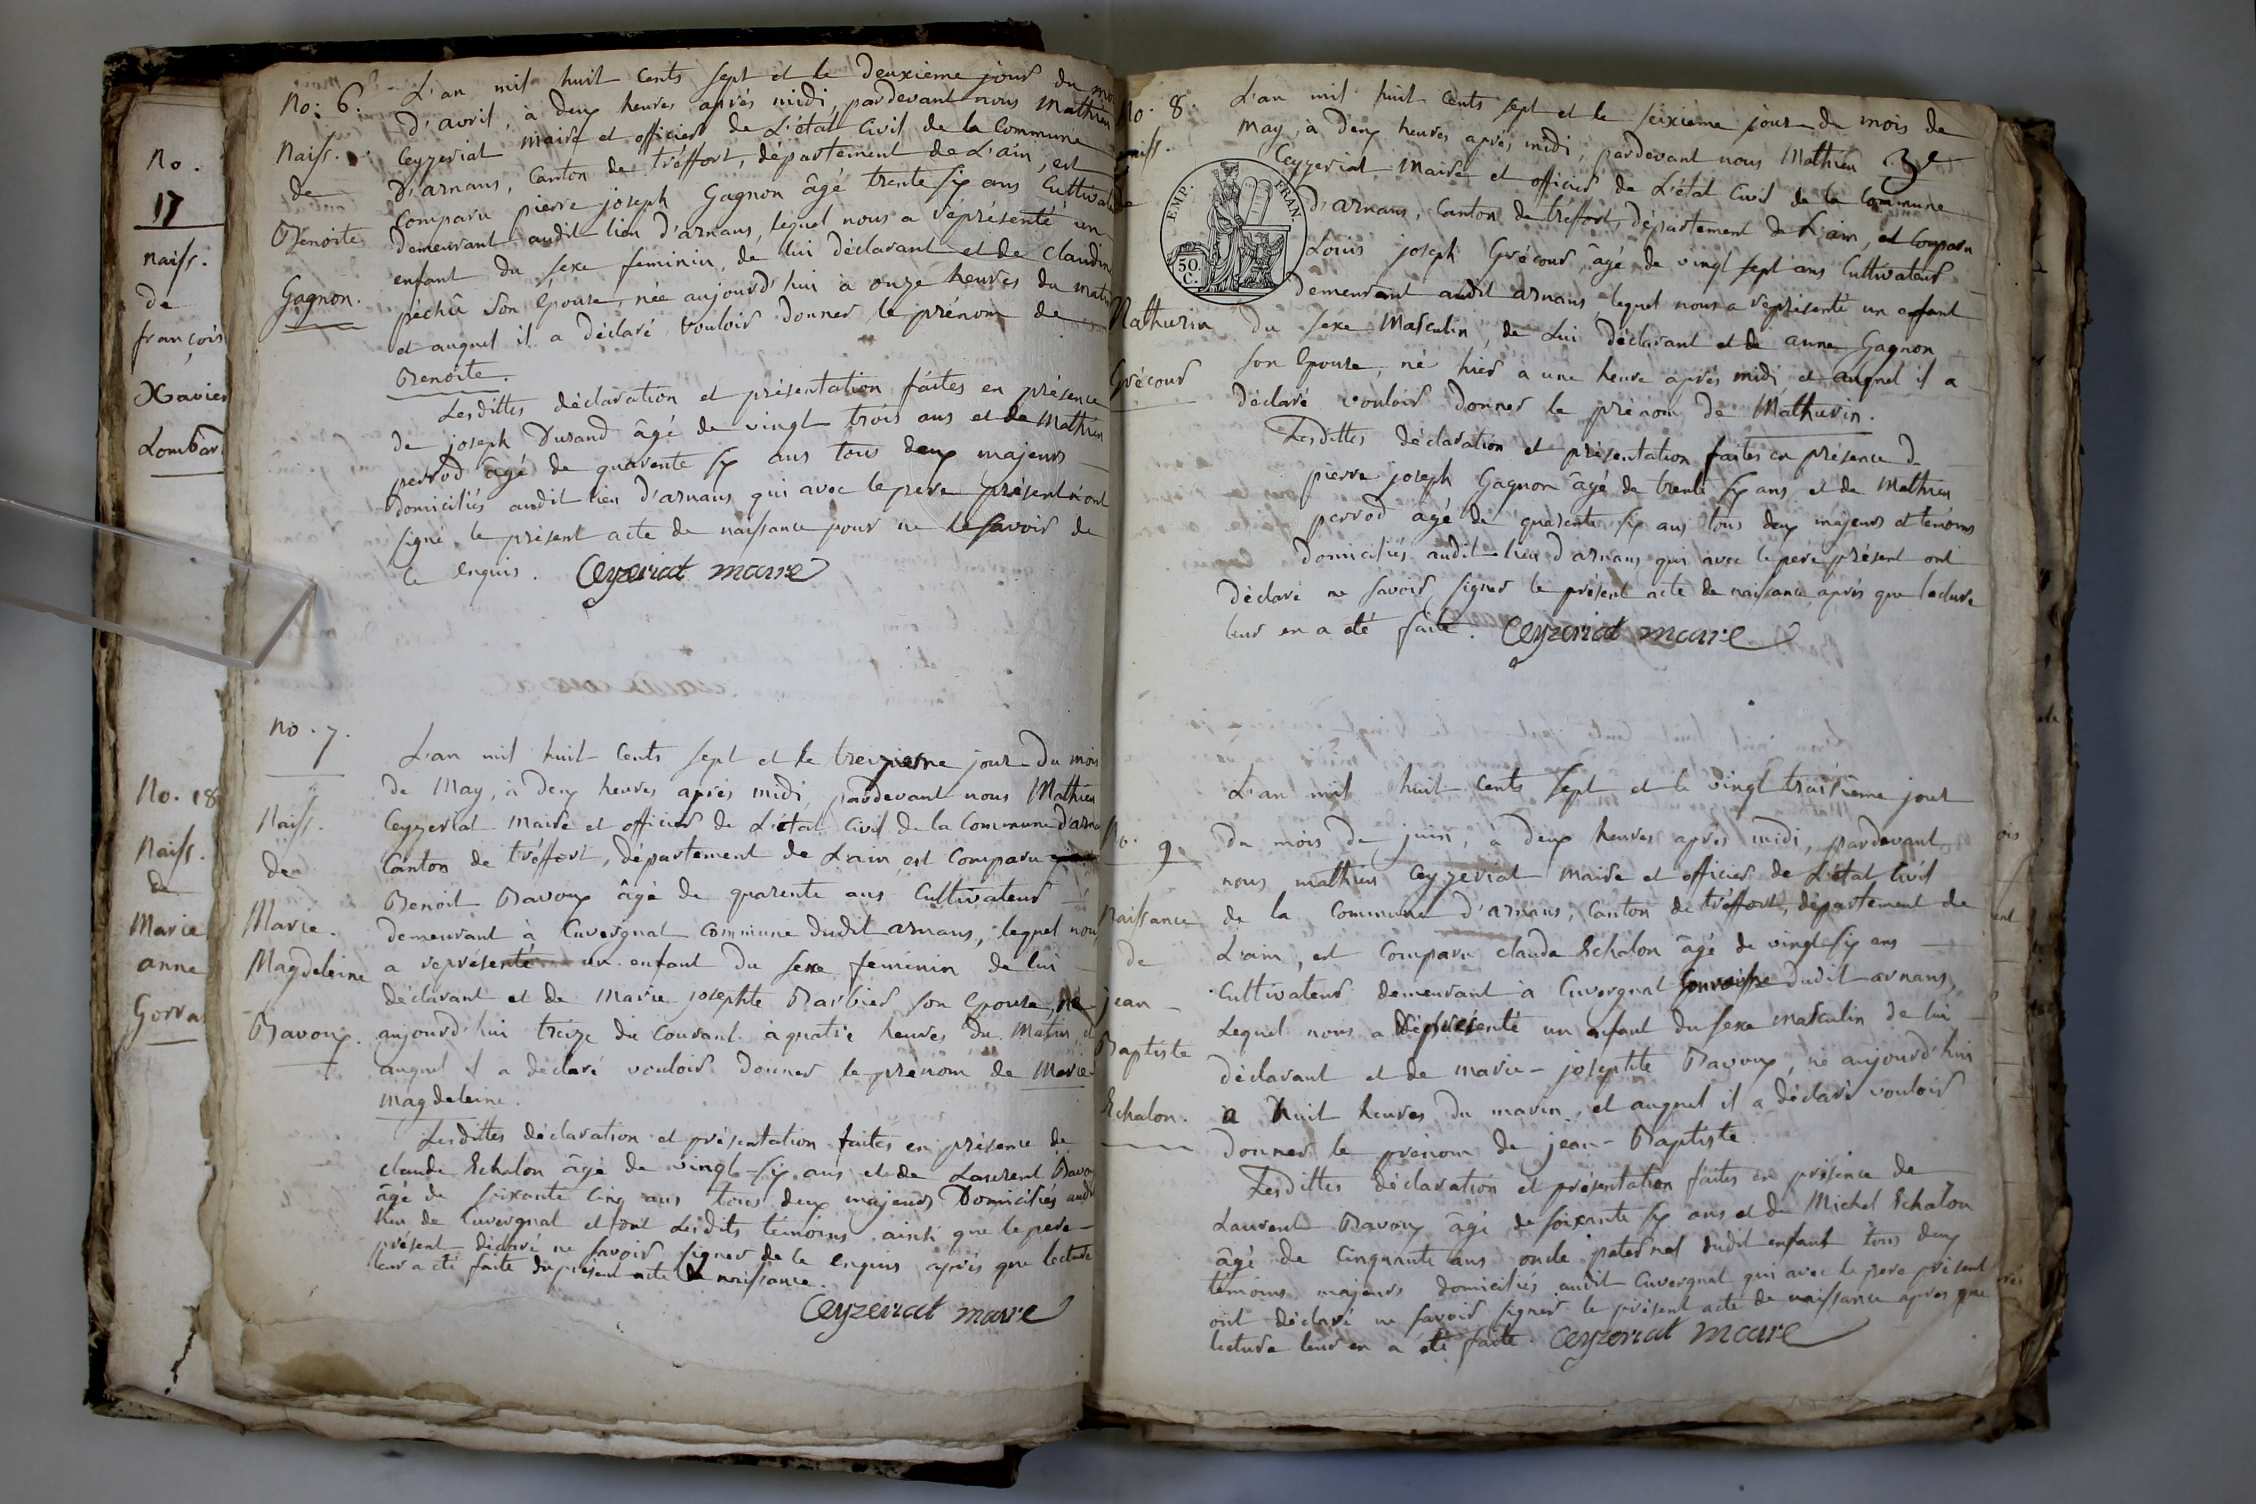 No.
17
naiss.
de
françois
Xavier
Lombar
No. 18
Naiss.
de
Marie
anne
Gorra
No: 6.
Naiss.
de
Benoite
Gagnon.
L'an mil huit cents sept et le deuxieme jour du moi
d'avril, à deux heures après midi, pardevant nous Mathieu
Ceyzeriat maire et officier de L'état Civil de la Commune
D'arnans, Canton de tréffort, département de L'ain, est
Comparu pierre joseph Gagnon âgé trente six ans Cultivate
demeurant audit lieu d'arnans, lequel nous a réprésenté un
enfant du sexe feminin, de lui déclarant et de Claudin
péchū son Epouse, née aujourd'hui à onze heures du mati
et auquel il a déclaré vouloir donner le prénom de
Benoite.
Lesdittes déclaration et présentation faites en présence
de joseph Durand âgé de vingt trois ans et de Mathieu
perrod âgé de quarente six ans tous deux majeurs
domiciliés audit lieu d'arnans qui avec le pere présent n'ont
signé le présent acte de naissance pour ne le savoir de
ce enquis. Ceyzeriat maire
no. 7.
Naiss.
de
Marie.
Magdeleine
Bavoux.
L'an mil huit Cents sept et le treizieme jour du mois
de May, à deux heures après midi, pardevant nous Mathieu
Ceyzeriat Maire et officier de L'état Civil de la Commune d'arna
Canton de tréffort, département de L'ain est Comparu
Benoit Bavoux âgé de quarente ans Cultivateur
demeurant à Cuvergnat Commune dudit arnans, lequel nous
a représenté un enfant du sexe feminin de lui
déclarant et de Marie josephte Barbier son Epouse, né
aujourd'hui treize du Courant à quatre heures du Matin, et
auquel il a déclaré vouloir donner le prénom de Marie
magdeleine.
Lesdittes déclaration et présentation faites en présence de
claude Echalon âgé de vingt-six ans et de Laurent Bavou
âgé de soixante Cinq ans tous deux majeurs Domiciliés audi
lieu de Cuvergnat et ont Lesdits témoins ainsi que le pere
présent déclaré ne savoir signer de ce enquis après que lecture
leur a été faite du présent acte de naissance.
Ceyzeriat maire
No. 8.
naiss.
de
Mathurin
Grécour
L'an mil huit Cents sept et le seixieme jour du mois de
May, à deux heures après midi, pardevant nous Mathieu
3e
Ceyzeriat Maire et officier de L'état Civil de la Commune
EMP. FRAN
50. C.
D'arnans, Canton de tréffort, département de L'ain, est Comparu
Louis joseph Grécour âgé de vingt sept ans Cultivateur
Demeurant audit arnans lequel nous a réprésenté un enfant
du sexe Masculin, de Lui déclarant et de anne Gagnon
son Epouse, né hier à une heure après midi et auquel il a
déclaré vouloir donner le prénom de Mathurin.
Lesdittes déclaration et présentation faites en présence de
pierre joseph Gagnon âgé de trente six ans, et de Mathieu
perrod âgé de quarente six ans tous deux majeurs et témoins
domiciliés audit lieu d'arnans qui avec le pere présent ont
déclaré ne savoir signer le présent acte de naissance, après que lecture
leur en a été faite. Ceyzeriat maire
No. 9.
Naissance
de
jean
Baptiste
Echalon.
L'an mil huit Cents sept et le vingt troisieme jour
du mois de juin, à deux heures après midi, pardevant
nous mathieu Ceyzeriat Maire et officier de L'état Civil
de la Commune d'arnans, Canton de tréffort, département de
L'ain, est Comparu claude Echalon âgé de vingt six ans
Cultivateur demeurant à Cuvergnat Commune dudit arnans,
Lequel nous a réprésenté un enfant du sexe masculin de lui
déclarant et de marie-josephte Bavoux, né aujourd'hui
a huit heures du matin, et auquel il a déclaré vouloir
Donner le prénom de jean-Baptiste.
Lesdittes déclaration et présentation faites en présence de
Laurent Bavoux âgé de soixante six ans et de Michel Echalon
âgé de Cinquante ans oncle paternel dudit enfant tous deux
témoins majeurs domiciliés audit Cuvergnat qui avec le pere présent
ont déclaré ne savoir signer le présent acte de naissance apres que
lecture leur en a été faite. Ceyzeriat maire